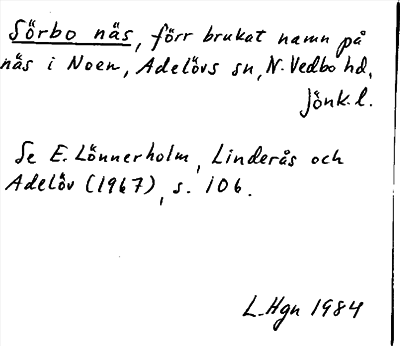 Sörbo näs, förr brukat namn på
näs i Noen, Adelövs sn, N. Vedbo hd,
Jönk. l.
Se E. Lönnerholm, Linderås och
Adelöv (1967), s. 106.
L. Hgn 1984